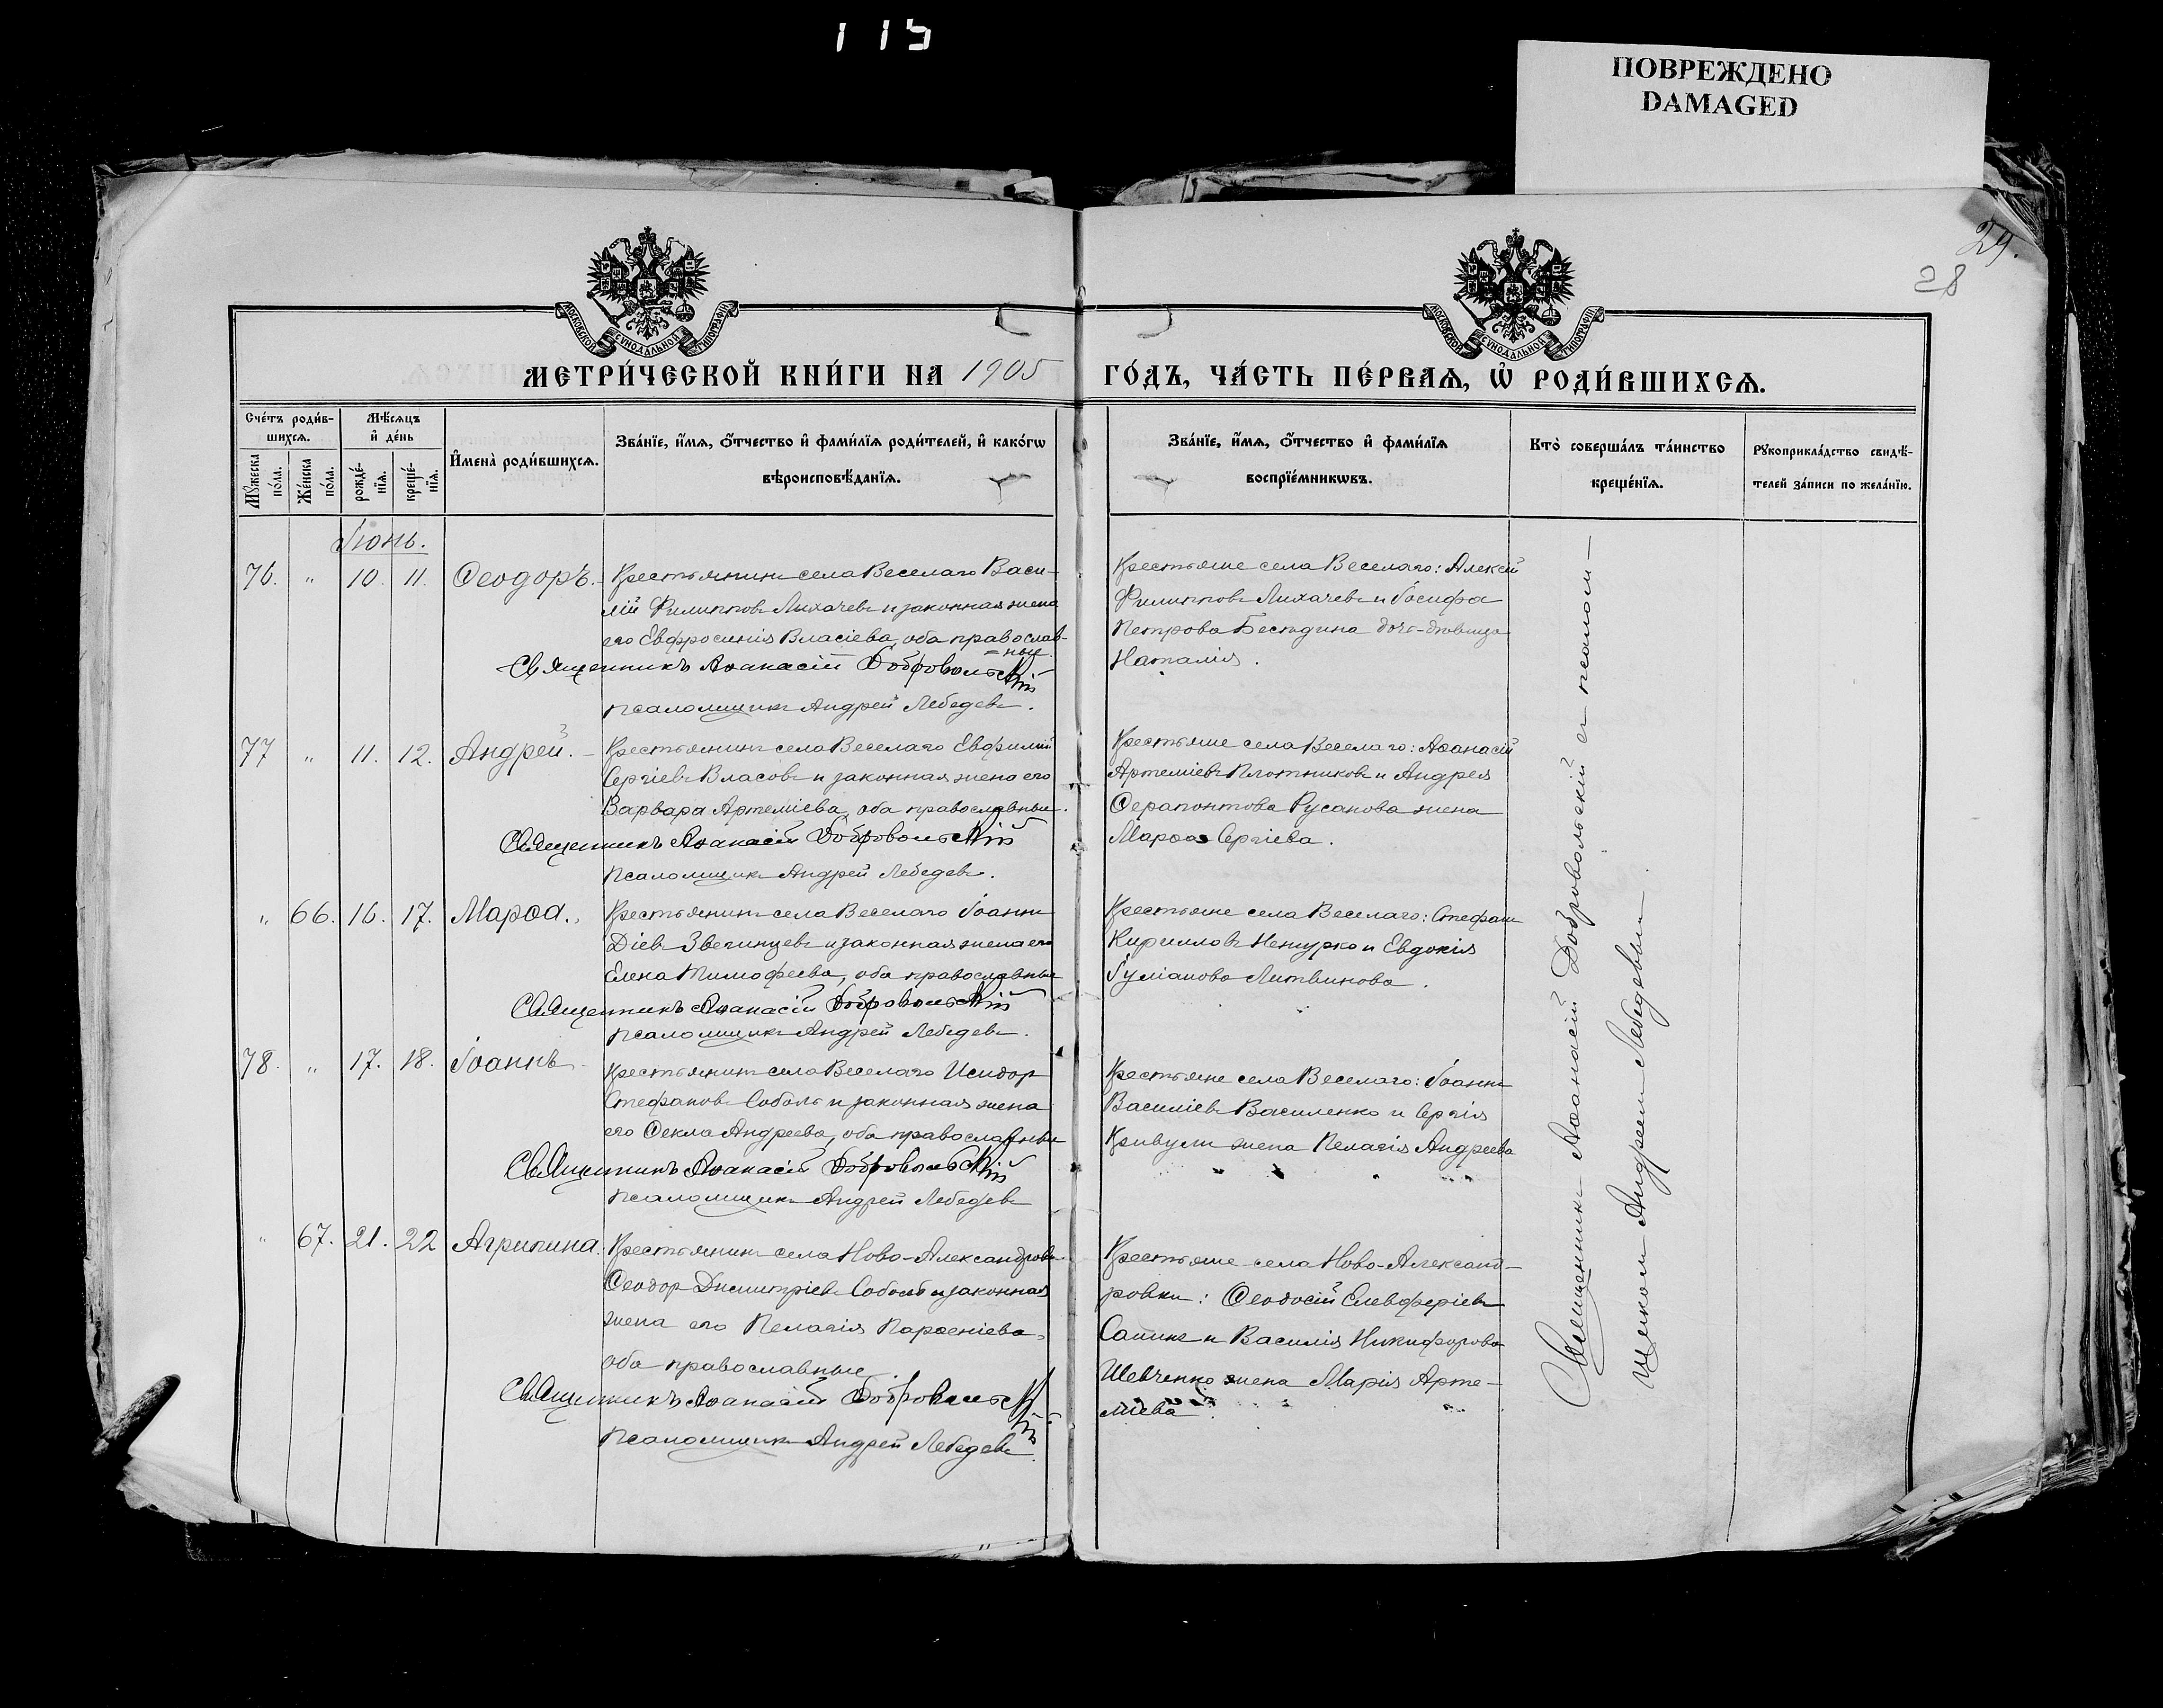 115
ПОВРЕЖДЕНО
DAMAGED
29.
28
МОСКОВСКОЙ СѴНОДАЛЬНОЙ ТИПОГРАФІИ
МОСКОВСКОЙ СѴНОДАЛЬНОЙ ТИПОГРАФІИ
МЕТРИ́ЧЕСКОЙ КНИ́ГИ НА 1905 ГО́ДЪ, ЧА́СТЬ ПЕ́РВАѦ, Ѡ҆ РОДИ́ВШИХСѦ.
Сче́тъ роди́в-
шихсѧ.
Мѣ́сѧцъ
и҆ де́нь
Мꙋ́жеска по́ла.
Же́нска по́ла.
рожде́-нїѧ.
креще́-нїѧ.
И҆мена̀ роди́вшихсѧ.
Зва́нїе, и҆́мѧ, ѻ҆́тчество и҆ фами́лїѧ роди́телей, и҆ како́гѡ
вѣроисповѣ́данїѧ.
Зва́нїе, и҆́мѧ, ѻ҆́тчество и҆ фами́лїѧ
воспрїе́мникѡвъ.
Кто̀ соверша́лъ та́инство
креще́нїѧ.
Рꙋкоприкла́дство свидѣ́-
телей за́писи по жела́нїю.
Іюнь.
76. " 10. 11. Ѳеодоръ. Крестьянинъ села Веселаго Васи-
лій Филипповъ Лихачевъ и законная жена
его Евфросинія Власіева, оба православ-
=ные.
Священникъ Аѳанасій Добровольскій
Псаломщикъ Андрей Лебедевъ.
Крестьяне села Веселаго: Алексій
Филипповъ Лихачевъ и Іосифа
Петрова Беседина дочь-девица
Наталія.
77 " 11. 12. Андрей. Крестьянинъ села Веселаго Евфимій
Сергіевъ Власовъ и законная жена его
Варвара Артеміева, оба православные.
Священникъ Аѳанасій Добровольскій
Псаломщикъ Андрей Лебедевъ.
Крестьяне села Веселаго: Аѳанасій
Артеміевъ Плотниковъ и Андрея
Серапонтова Русанова жена
Марѳа Сергіева.
" 66. 16. 17. Марѳа. Крестьянинъ села Веселаго Іоаннъ
Діевъ Звегинцевъ и законная жена его
Елена Тимофеева, оба православные
Священникъ Аѳанасій Добровольскій
Псаломщикъ Андрей Лебедевъ.
Крестьяне села Веселаго: Стефанъ
Кирилловъ и Евдокія
Литвинова.
78. " 17. 18. Іоаннъ Крестьянинъ села Веселаго Исидоръ
Стефановъ Соболь и законная жена
его Ѳекла Андреева, оба православные
Священникъ Аѳанасій Добровольскій
Псаломщикъ Андрей Лебедевъ
Крестьяне села Веселаго: Іоаннъ
Василіевъ Василенко и Сергія
Кривули жена Пелагія Андреева
" 67. 21. 22 Агрипина. Крестьянинъ села Ново-Александровки
Ѳеодоръ Димитріевъ Соболь и законная
жена его Пелагія Парѳеніева,
оба православные.
Священникъ Аѳанасій Добровольскій
Псаломщикъ Андрей Лебедевъ.
Крестьяне села Ново-Александ-
ровки: Ѳеодосій Елевферіевъ
и Василія Никифорова
Шевченко жена Марія Арте-
міева.
Священникъ Аѳанасій Добровольскій съ псалом-
щикомъ Андреемъ Лебедевымъ.